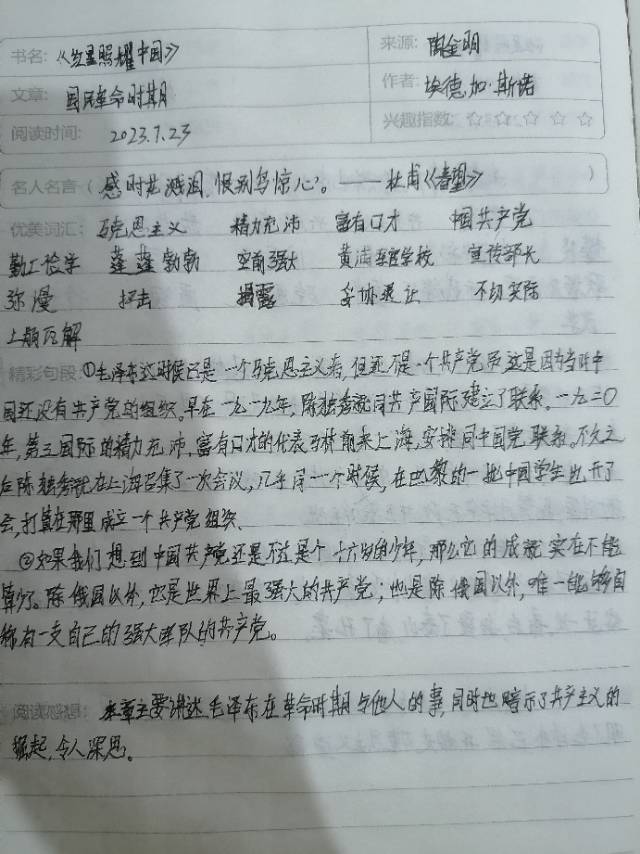 书名: 《红星照耀中国》 来源: 陶金明
文章: 国民革命时期 作者: 埃德加·斯诺
阅读时间: 2023.7.23 兴趣指数: ☆ ☆ ☆ ☆ ☆
名人名言 ( 感时花溅泪,恨别鸟惊心。——杜甫《春望》 )
优美词汇: 马克思主义 精力充沛 富有口才 中国共产党
勤工俭学 蓬蓬勃勃 空前强大 黄浦军官学校 宣传部长
弥漫 抨击 揭露 妥协退让 不切实际
土崩瓦解
精彩句段: ①毛泽东这时候已是一个马克思主义者,但还不是一个共产党员,这是因为当时中
国还没有共产党的组织。早在一九一九年,陈独秀就同共产国际建立了联系。一九二〇
年,第三国际的精力充沛,富有口才的代表马林前来上海,安排同中国党联系。不久之
后陈独秀就在上海召集了一次会议,几乎同一个时候,在巴黎的一批中国学生也开了
会,打算在那里成立一个共产党组织。
②如果我们想到中国共产党还是不过是个十六岁的少年,那么它的成就实在不能
算少了。除俄国以外,它是世界上最强大的共产党;也是除俄国以外,唯一能够自
称有一支自己的强大军队的共产党。
阅读感想: 本章主要讲述毛泽东在革命时期与他人的事,同时也暗示了共产主义的
崛起,令人深思。